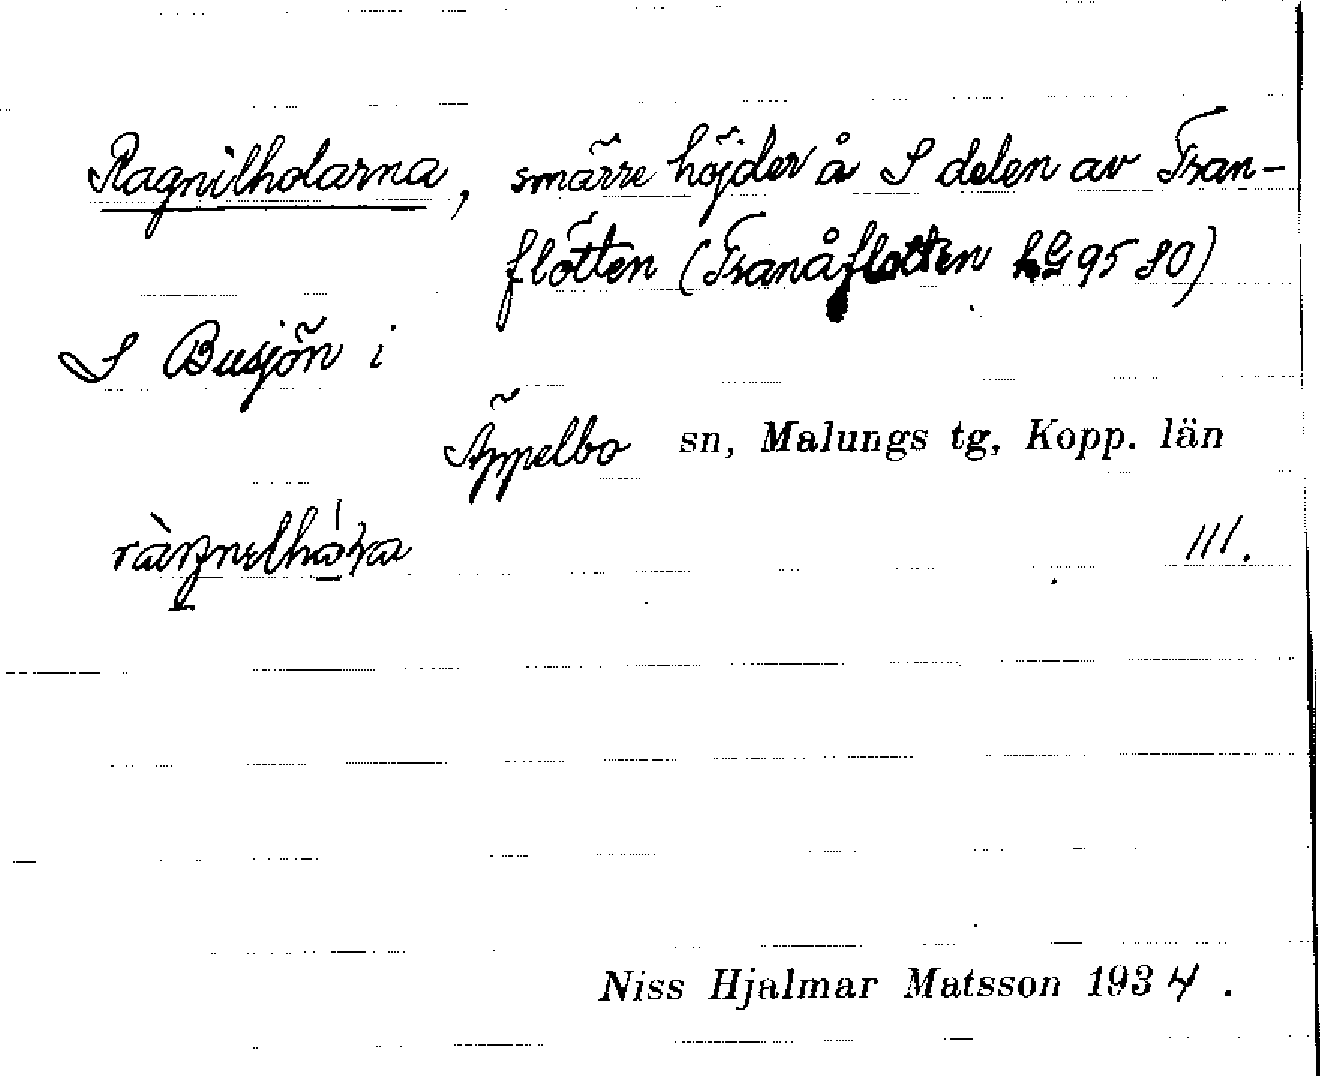 Ragnilholarna, smärre höjder å S delen av Tran-
flötten (Tranåflotten hG 95 80)
S Busjön i
Äppelbo sn, Malungs tg, Kopp. län
III.
Niss Hjalmar Matsson 1934.